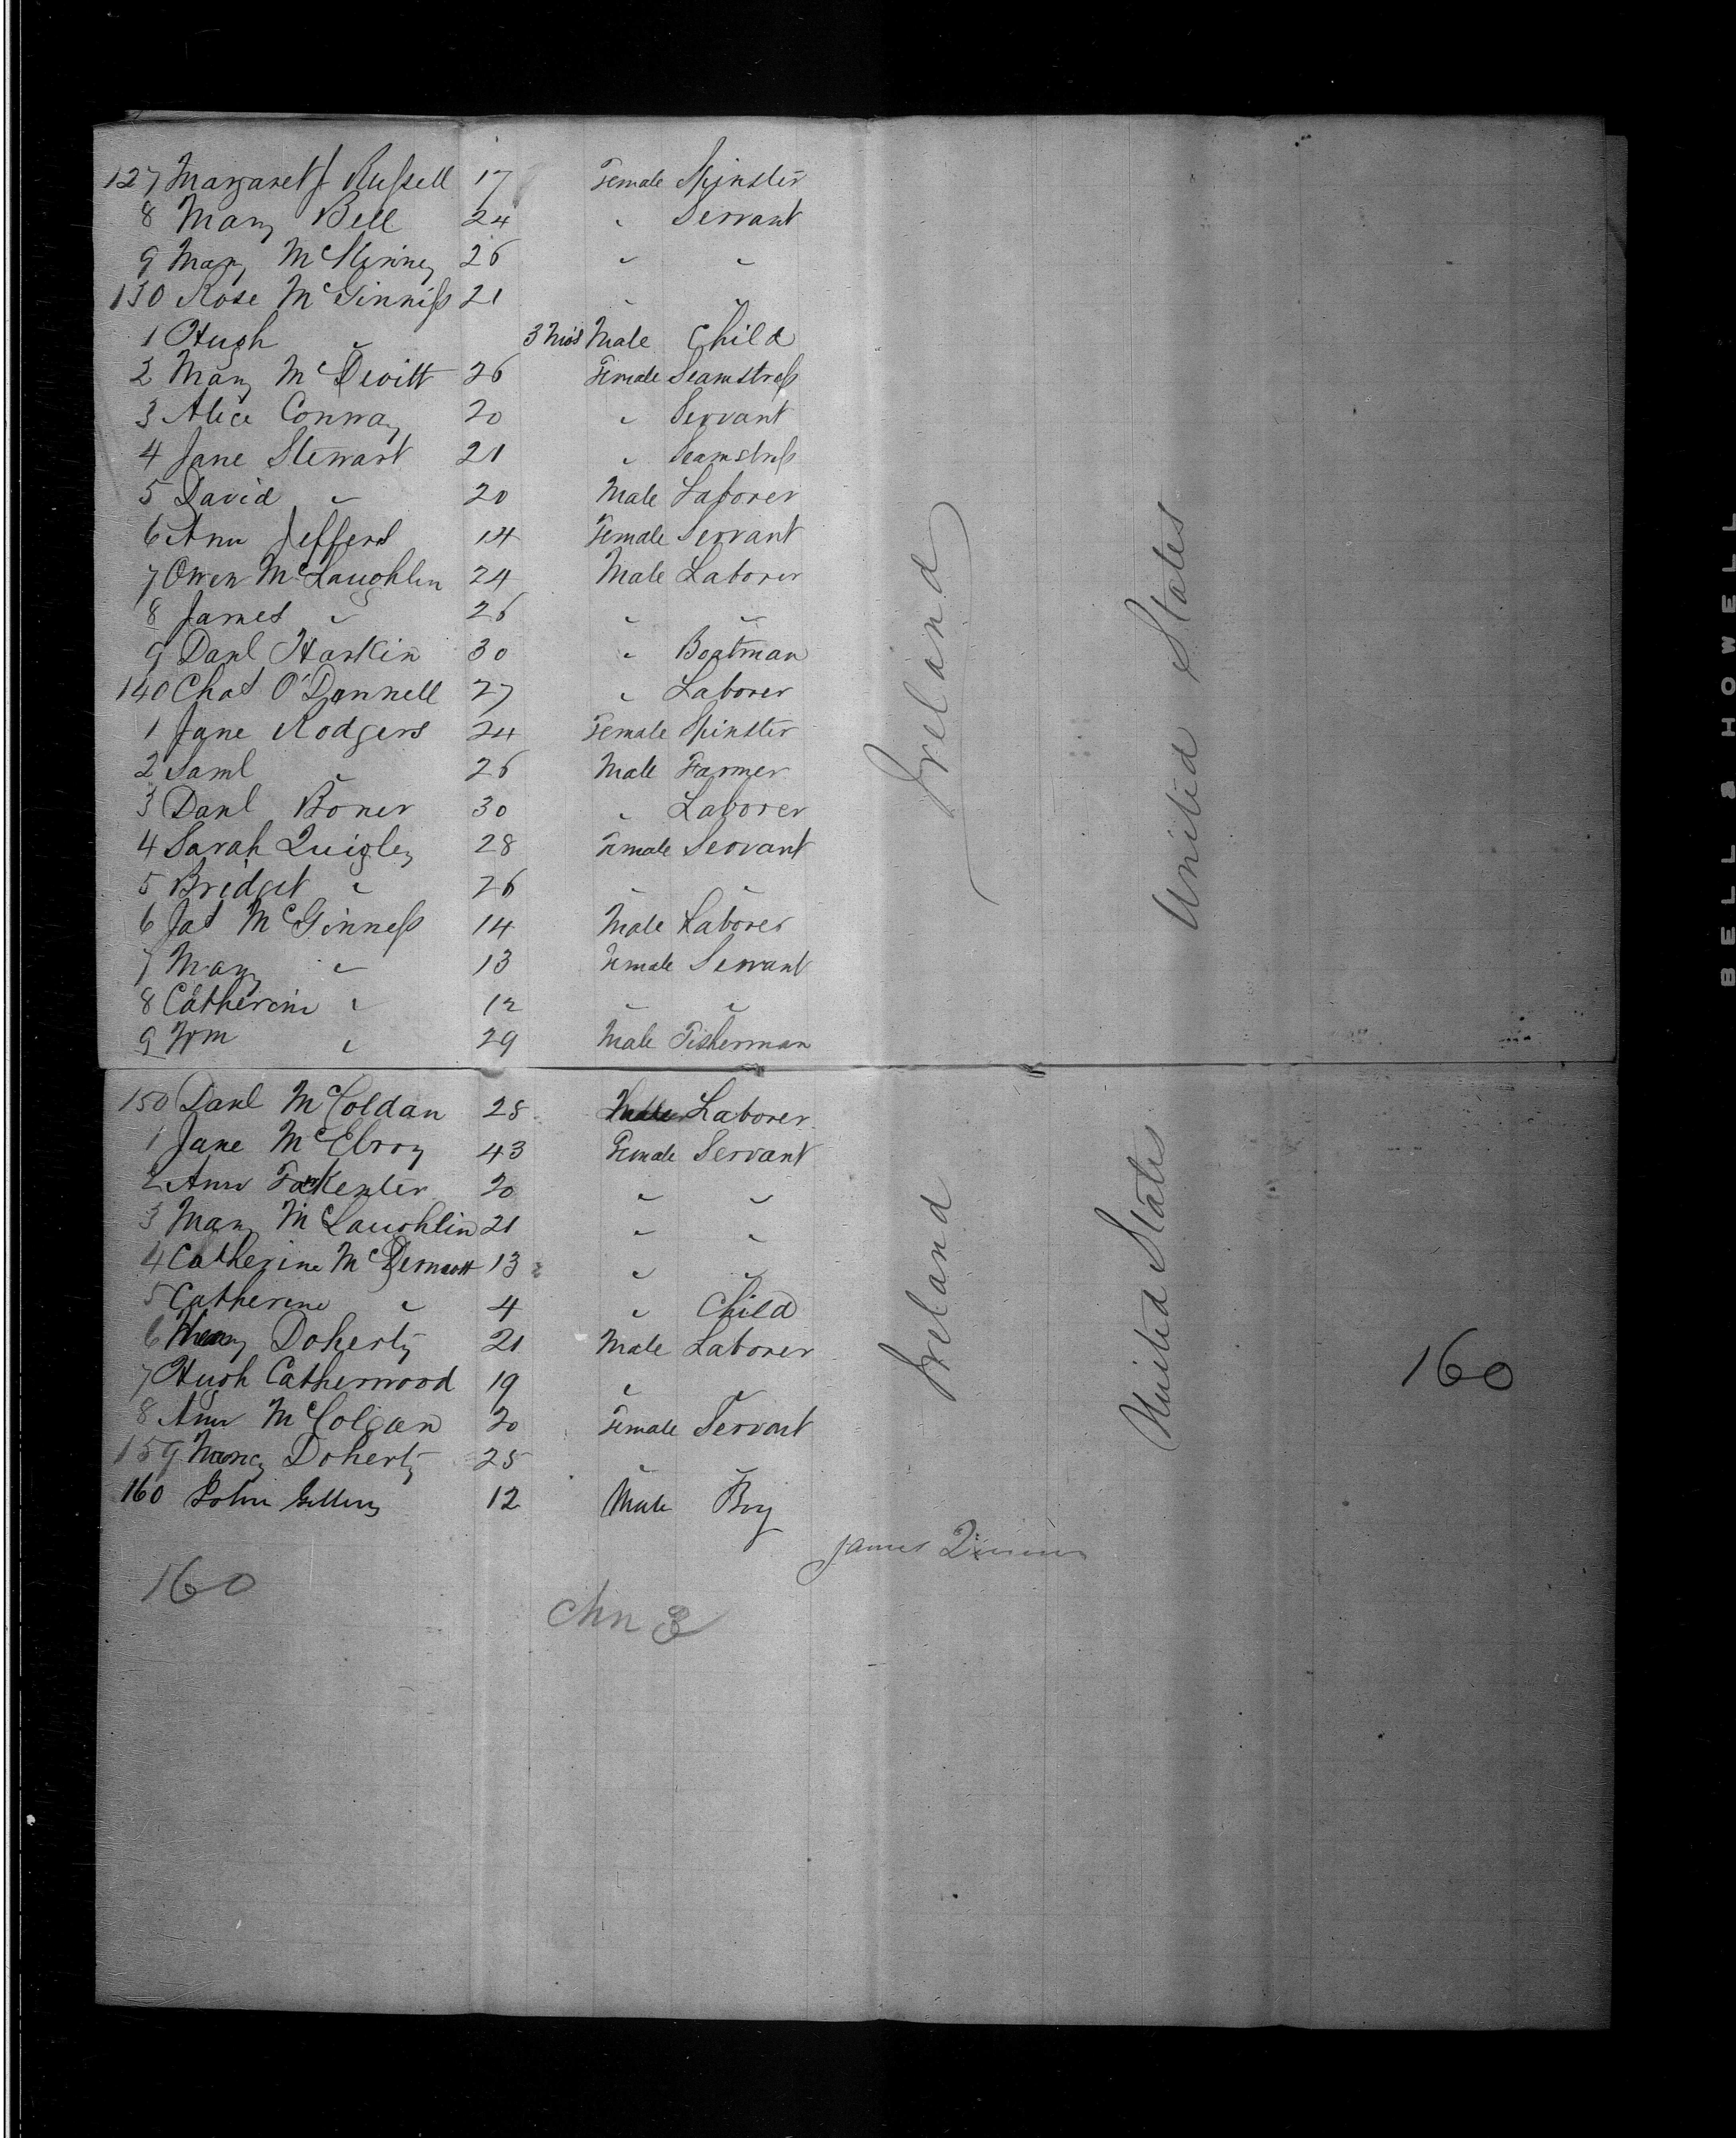 127 Margaret J Russell 17 Female Spinster
8 Mary Bell 24 " Servant
9 Mary McKinney 26 " "
130 Rose McGinniss 21 " "
1 Hugh " 3 Mos Male Child
2 Mary McDevitt 26 Female Seamstress
3 Alice Conway 20 " Servant
4 Jane Stewart 21 " Seamstress
5 David " 20 Male Laborer
6 Ann Jeffers 14 Female Servant
7 Owen McLaughlin 24 Male Laborer
8 James " 26 " "
9 Danl Harkin 30 " Boatman
140 Chas O'Donnell 27 " Laborer
1 Jane Rodgers 24 Female Spinster
2 Saml " 26 Male Farmer
3 Danl Boner 30 " Laborer
4 Sarah Quigley 28 Female Servant
5 Bridget " 26 " "
6 Jas McGinness 14 Male Laborer
7 Mary " 13 Female Servant
8 Catherine " 12 " "
9 Wm " 29 Male Fisherman
Ireland
United States
150 Danl McColdan 28 Male Laborer
1 Jane McElroy 43 Female Servant
2 Ann 20 " "
3 Mary McLaughlin 21 " "
4 Catherine McDermott 13 " "
5 Catherine " 4 " Child
6 Doherty 21 Male Laborer
7 Hugh Catherwood 19 " "
8 Ann McColgan 20 Female Servant
159 Nancy Doherty 25 " "
160 John 12 Male Boy
Ireland
United States
160
James
160
Chn 3
BELL & HOWELL